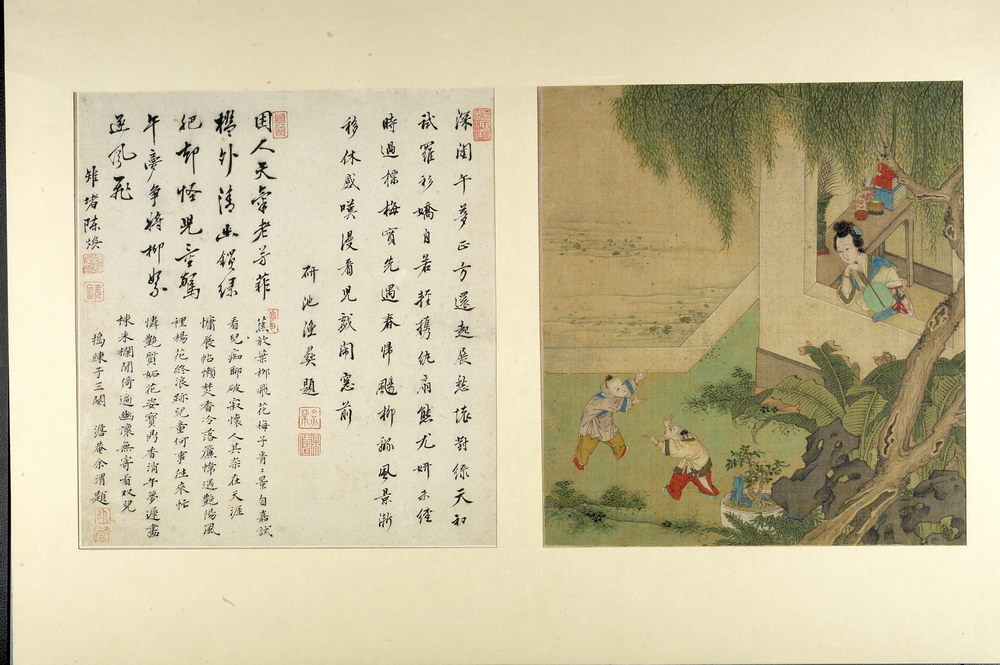 深閨午夢正方還起展愁懷對綠天初
試羅衫嬌自若輕携紈扇態尤妍未經
時過摽梅實先遇春帰飄柳綿風景漸
移休感嘆漫看兒戲閙窓前
研池漁彝題
困人天氣老芳菲
檻外清幽鎖綠
肥却怪兒童驚
午夢爭將柳絮
逐風飛
雉堵陳煥
蕉放葉柳飛花梅子青〻景自嘉試
看兒痴聊破寂懷人其奈在天涯
慵展帖懶焚香冷落簾幃過艷陽風
裡楊花終浪跡兒童何事往來忙
憐艷質妬花姿寶鴨香消午夢遲畫
棟朱欄閒倚遍幽懷無寄看双兒
搗練子三闋 澹菴余渭題